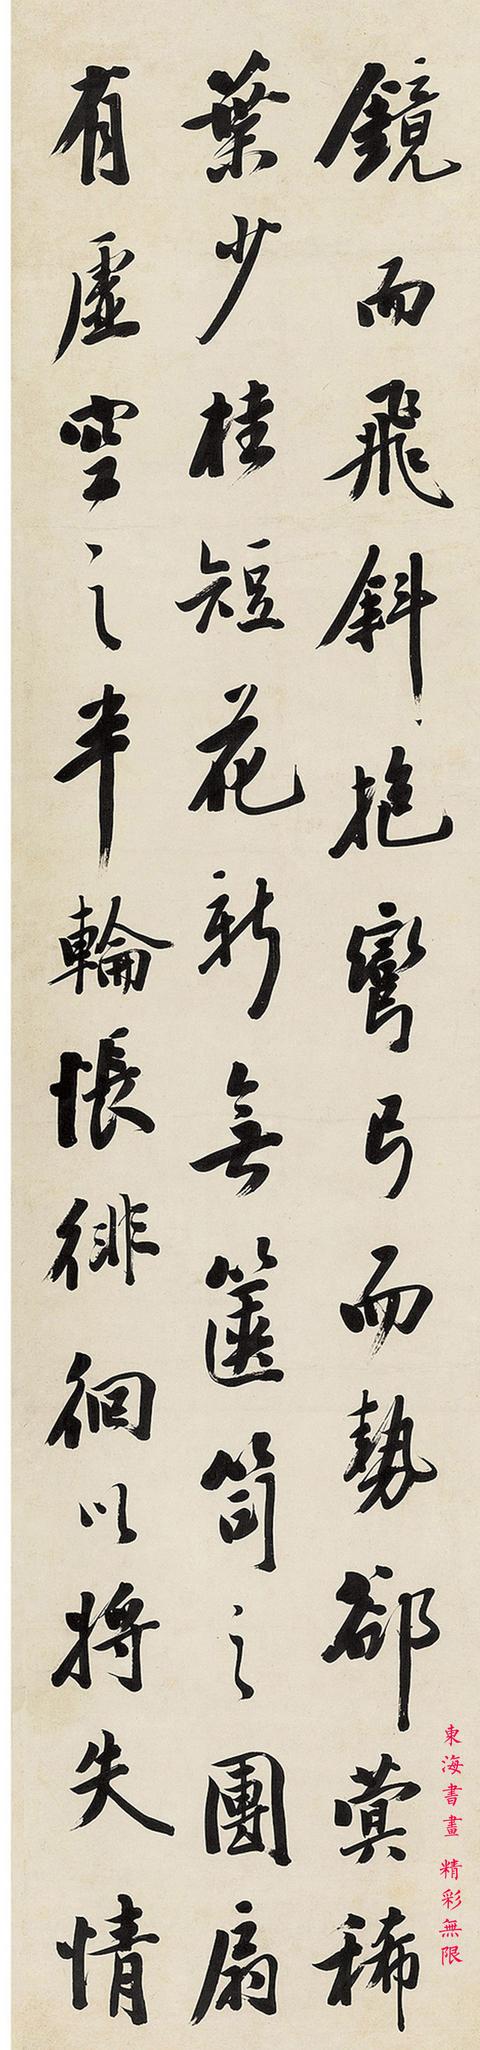 鏡而飛斜抱彎弓而勢郤蓂稀
葉少桂短花新無篋笥之團扇
有虛空之半輪悵徘徊以將失情
東海書畫 精彩無限